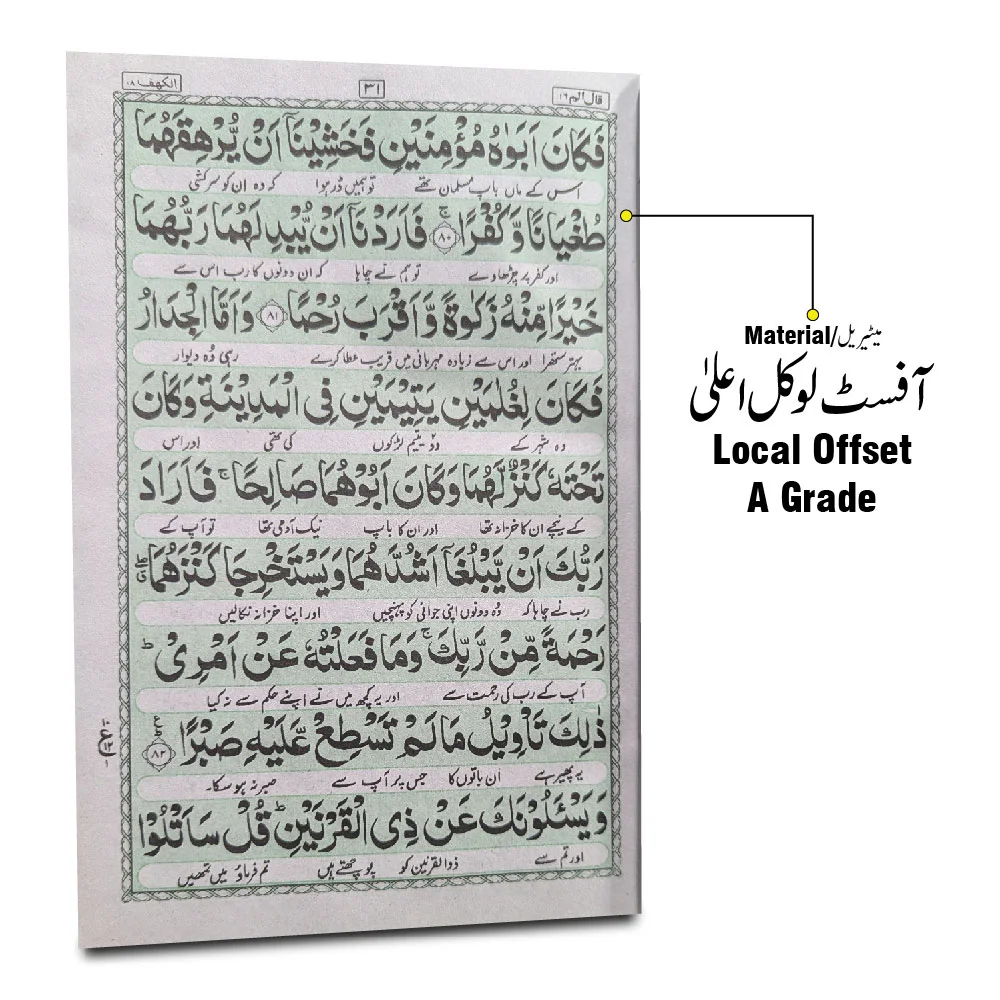 قال الم ١٦
٣١
الكهف ١٨
فَكَانَ اَبَوٰهُ مُؤْمِنَيْنِ فَخَشِيْنَاۤ اَنْ يُّرْهِقَهُمَا
اس کے ماں باپ مسلمان تھے تو ہمیں ڈر ہوا کہ وہ ان کو سرکشی
طُغْيَانًا وَّكُفْرًا ۚ ٨٠ فَاَرَدْنَاۤ اَنْ يُّبْدِلَهُمَا رَبُّهُمَا
اور کفر پر چڑھاوے تو ہم نے چاہا کہ ان دونوں کا رب اس سے
خَيْرًا مِّنْهُ زَكٰوةً وَّاَقْرَبَ رُحْمًا ٨١ وَاَمَّا الْجِدَارُ
بہتر ستھرا اور اس سے زیادہ مہربانی میں قریب عطا کرے رہی وُہ دیوار
فَكَانَ لِغُلٰمَيْنِ يَتِيْمَيْنِ فِى الْمَدِيْنَةِ وَكَانَ
وہ شہر کے دو یتیم لڑکوں کی تھی اور اس
تَحْتَهٗ كَنْزٌ لَّهُمَا وَكَانَ اَبُوْهُمَا صَالِحًا ۚ فَاَرَادَ
کے نیچے ان کا خزانہ تھا اور ان کا باپ نیک آدمی تھا تو آپ کے
رَبُّكَ اَنْ يَّبْلُغَاۤ اَشُدَّهُمَا وَيَسْتَخْرِجَا كَنْزَهُمَا
رب نے چاہا کہ وُہ دونوں اپنی جوانی کو پہنچیں اور اپنا خزانہ نکالیں
رَحْمَةً مِّنْ رَّبِّكَ ۚ وَمَا فَعَلْتُهٗ عَنْ اَمْرِىْ ؕ
آپ کے رب کی رحمت سے اور یہ کچھ میں نے اپنے حکم سے نہ کیا
ذٰلِكَ تَاْوِيْلُ مَا لَمْ تَسْطِعْ عَّلَيْهِ صَبْرًا ٨٢
یہ پھیر ہے ان باتوں کا جس پر آپ سے صبر نہ ہو سکا
وَيَسْـَٔلُوْنَكَ عَنْ ذِى الْقَرْنَيْنِ ؕ قُلْ سَاَتْلُوْا
اور تم سے ذوالقرنین کو پوچھتے ہیں تم فرماؤ میں تمھیں
Material/میٹیریل
آفسٹ لوکل اعلیٰ
Local Offset
A Grade